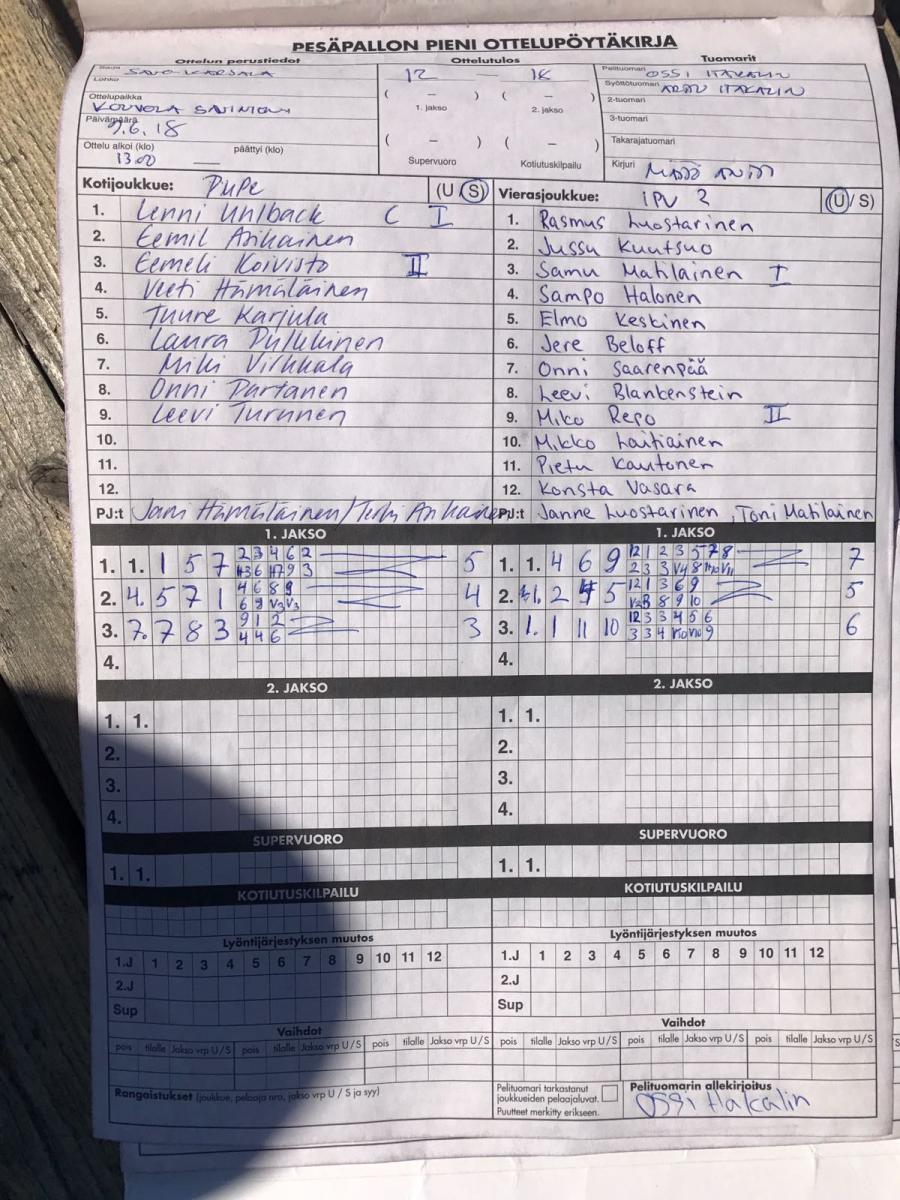 PESÄPALLON PIENI OTTELUPÖYTÄKIRJA
Ottelun perustiedot Ottelutulos Tuomarit
Sarja SAVO-KARJALA 12 — 18 Pelituomari OSSI ITÄKALIN
Lohko Syöttötuomari ITÄKALIN
Ottelupaikka KOUVOLA ( – ) ( – ) 2-tuomari
1. jakso 2. jakso
Päivämäärä 9.6.18 3-tuomari
Ottelu alkoi (klo) päättyi (klo) ( – ) ( – ) Takarajatuomari
13.00 Supervuoro Kotiutuskilpailu Kirjuri
Kotijoukkue: PuPe (U/S) Vierasjoukkue: IPV 2 (U/S)
1. Lenni Uhlback C I 1. Rasmus Luostarinen
2. Eemil Asikainen 2. Jussu Kuutsuo
3. Eemeli Koivisto II 3. Samu Matilainen I
4. Veeti Hämäläinen 4. Sampo Halonen
5. Tuure Karjula 5. Elmo Keskinen
6. Laura Pulkkinen 6. Jere Beloff
7. Miki Virkkala 7. Onni Saarenpää
8. Onni Partanen 8. Leevi Blankenstein
9. Leevi Turunen 9. Miko Repo II
10. 10. Mikko Laitiainen
11. 11. Pietu Kautonen
12. 12. Konsta Vasara
PJ:t Jani Hämäläinen/ PJ:t Janne Luostarinen, Toni Matilainen
1. JAKSO 1. JAKSO
1. 1. 1 5 7 2 3 4 6 2 5 1. 1. 4 6 9 12 1 2 3 5 7 8 7
2. 4. 5 7 1 4 6 8 9 4 2. 1. 2 5 12 1 3 6 9 5
3. 7. 7 8 3 9 1 2 3 3. 1. 1 11 10 12 3 3 4 5 6 6
4 4 6
4. 4.
2. JAKSO 2. JAKSO
1. 1. 1. 1.
2. 2.
3. 3.
4. 4.
SUPERVUORO SUPERVUORO
1. 1. 1. 1.
KOTIUTUSKILPAILU KOTIUTUSKILPAILU
Lyöntijärjestyksen muutos Lyöntijärjestyksen muutos
1.J 1 2 3 4 5 6 7 8 9 10 11 12 1.J 1 2 3 4 5 6 7 8 9 10 11 12
2.J 2.J
Sup Sup
Vaihdot Vaihdot
pois tilalle Jakso vrp U/S pois tilalle Jakso vrp U/S pois tilalle Jakso vrp U/S pois tilalle Jakso vrp U/S pois tilalle Jakso vrp U/S pois tilalle Jakso vrp U/S
Rangaistukset (joukkue, pelaaja nro, jakso vrp U / S ja syy) Pelituomari tarkastanut Pelituomarin allekirjoitus
joukkueiden pelaajaluvat. Ossi Itäkalin
Puutteet merkitty erikseen.